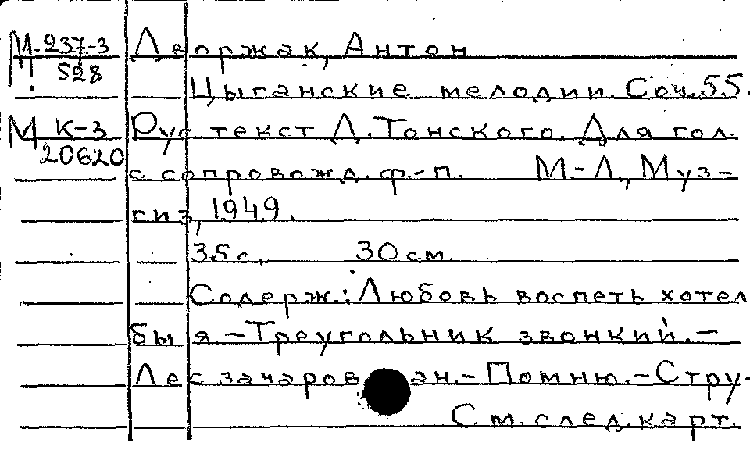 М-237-3 Дворжак, Антон
528
Цыганские мелодии. Соч. 55.
М К-3 Рус текст Д. Тонского. Для гол.
20620
с сопровожд. ф.-п. М-Л., Муз-
гиз, 1949.
35 с. 30 см
Содерж.: Любовь воспеть хотел
бы я. – Треугольник звонкий. –
Лес зачарован. – Помню. – Стру-
См. след. карт.